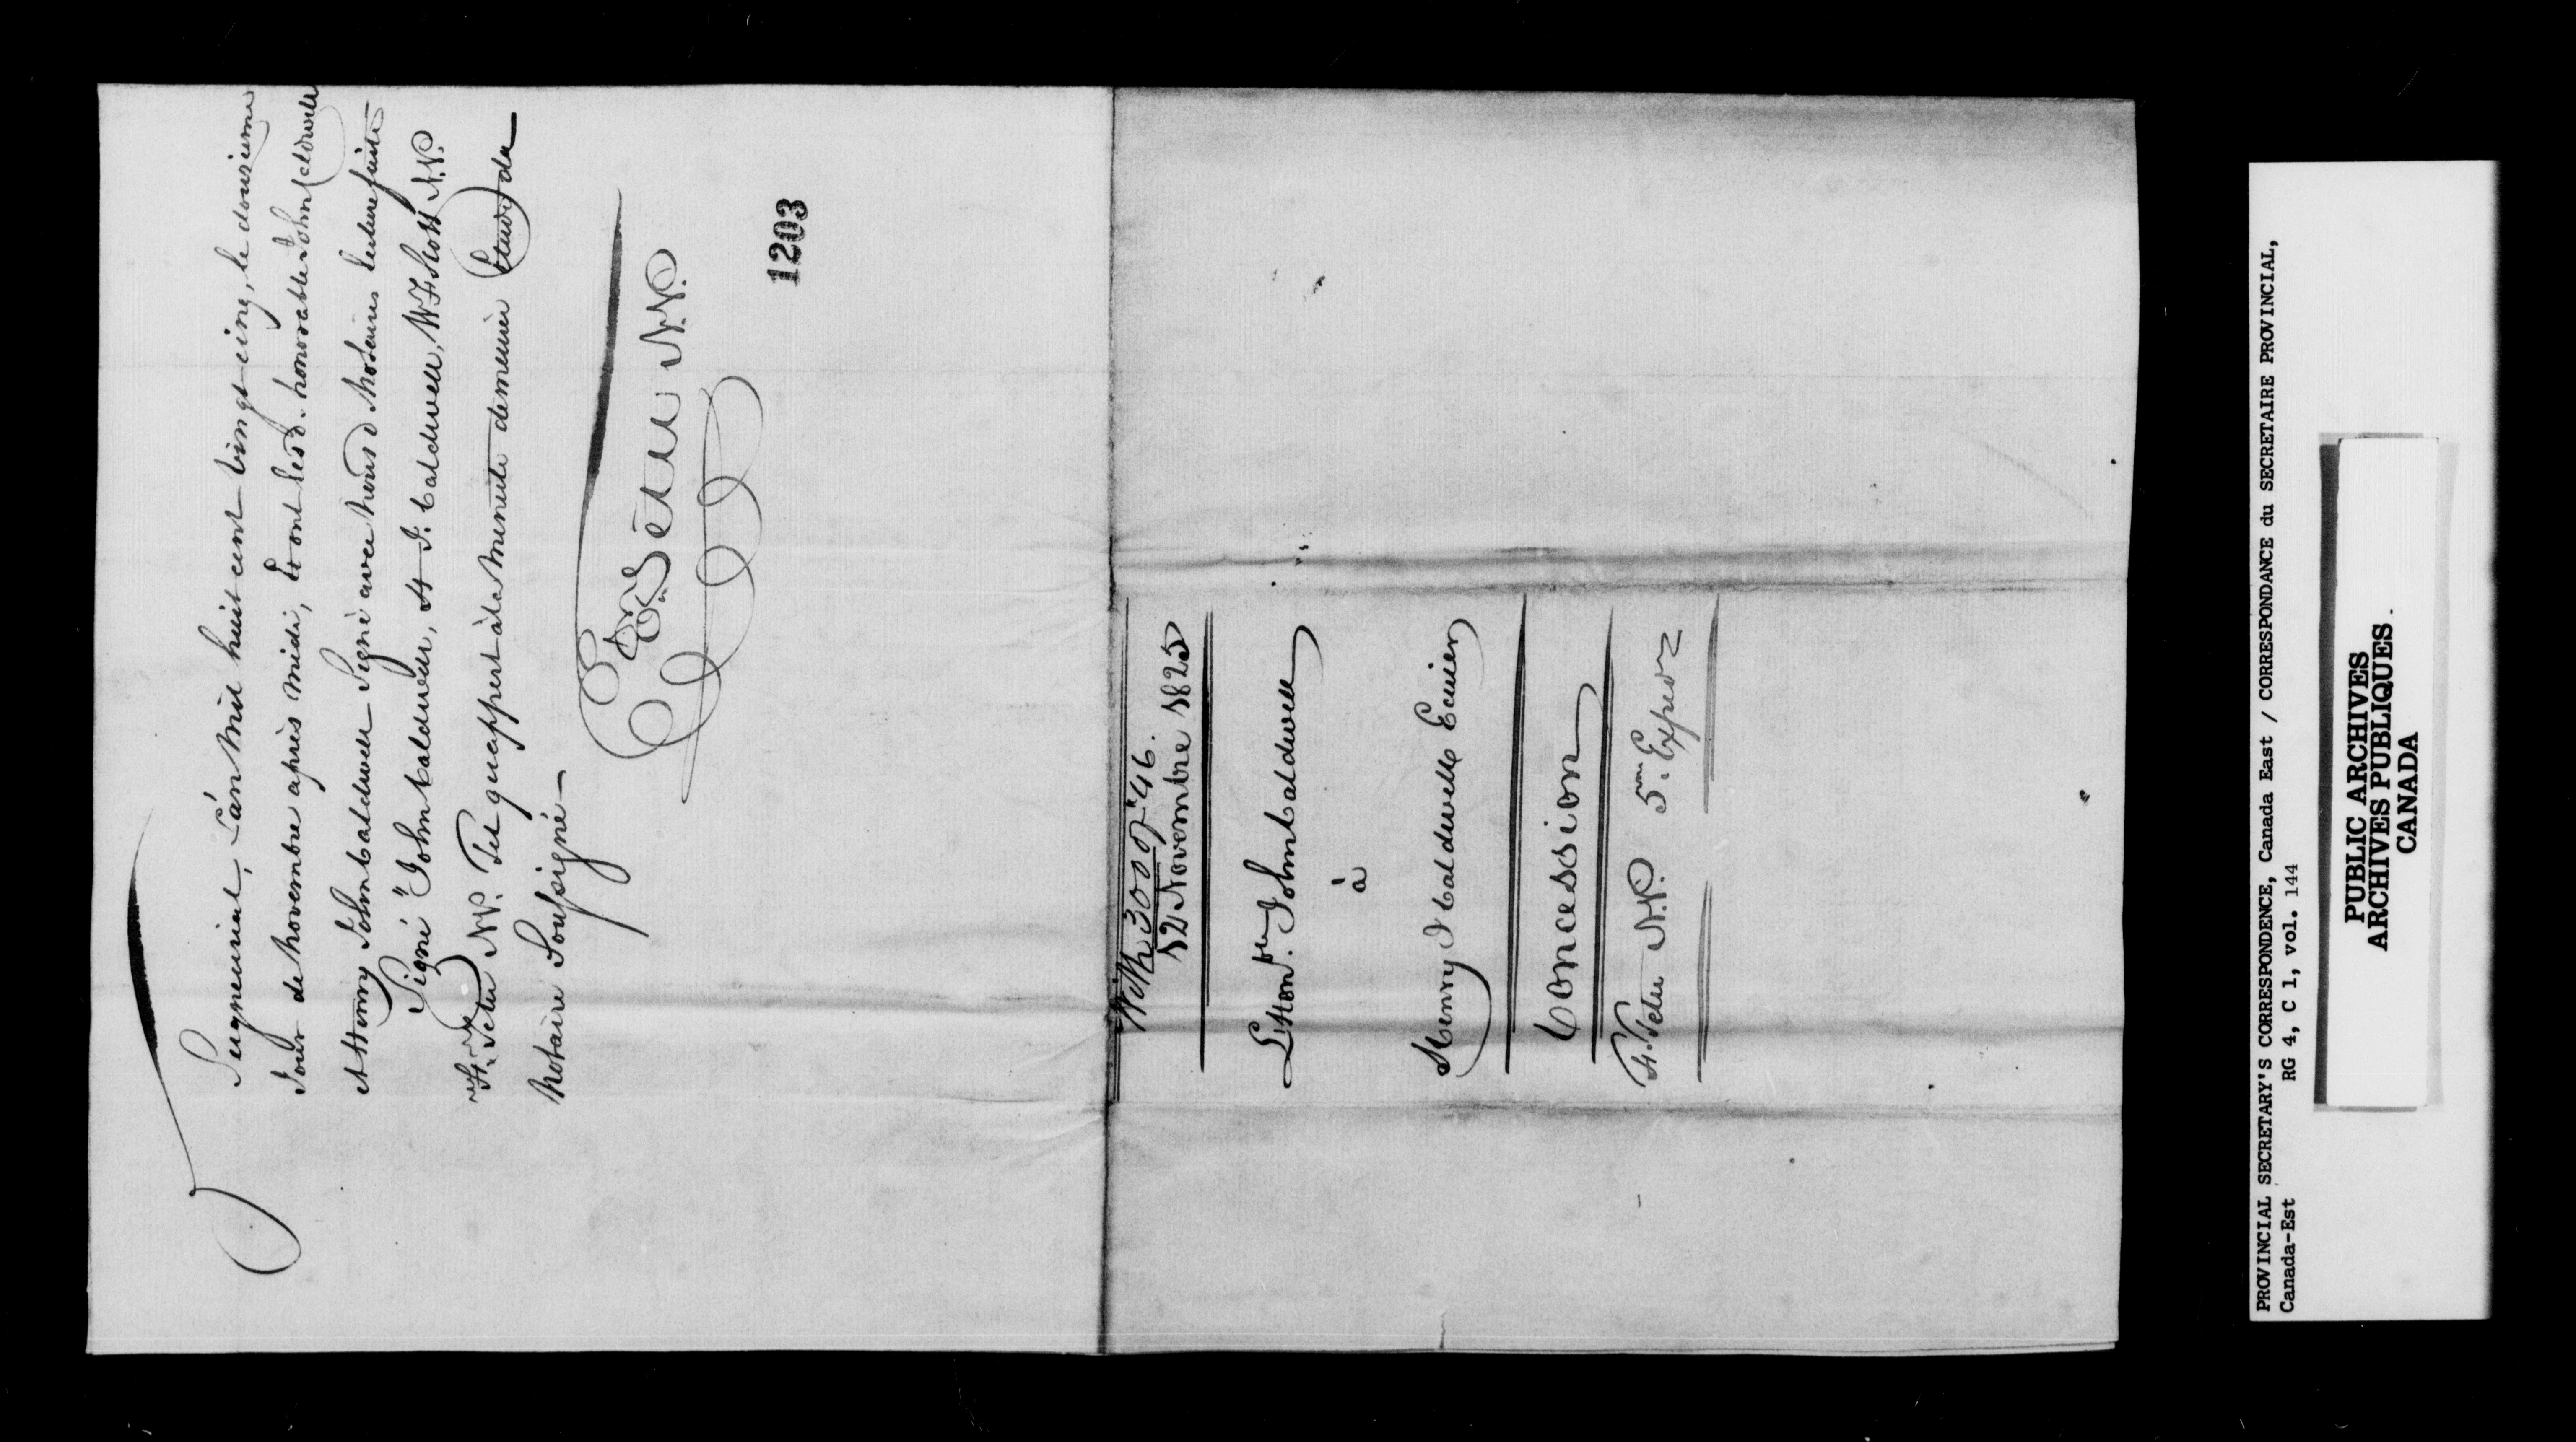 Seigneurial, L'an mil huit cent vingt-cinq, le douzieme
Jour de Novembre après midi, Et ont lesd. honorable John Caldwell
et Henry John Caldwell Signé avec Nous d Notaires lecture faite
Signé "John Caldwell, H. J. Caldwell, W. F. Scott N.P.
"F. Tetu N.P. Tel qu'appert à la Minute demeurée Etude du
Notaire Soussigné —
Tetu N.P.
1203
With 3000 of '46.
12 Novembre 1825
L'Hon. ble John Caldwell
à
Henry J Caldwell Ecuier
Concession
F. Tetu N.P. 5me Expedn
PROVINCIAL SECRETARY'S CORRESPONDENCE, Canada East / CORRESPONDANCE du SECRETAIRE PROVINCIAL,
Canada-Est RG 4, C 1, vol. 144
PUBLIC ARCHIVES
ARCHIVES PUBLIQUES
CANADA